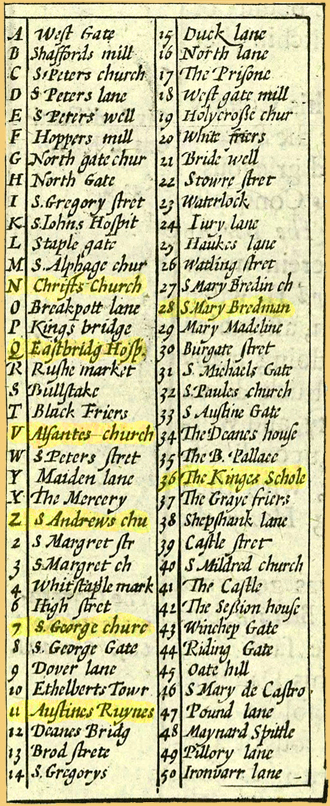 A West Gate
B Shaffords mill
C S Peters church
D S Peters lane
E S Peters well
F Hoppers mill
G North gate chur
H North Gate
I S.Gregory stret
K S.Iohns Hospit
L Staple gate
M S.Alphage chur
N Christs church
O Breakpott lane
P Kings bridge
Q Eastbridg Hosp.
R Rushe market
S Bullstake
T Black Friers
V Alsantes church
W S Peters stret
Y Maiden lane
X The Mercery
Z S Andrews chu
2 S Margret str
3 S Margret ch
4 Whitstaple mark
6 High stret
7 S. George churc
8 S. George Gate
9 Dover lane
10 Ethelberts Towr
11 Austines Ruynes
12 Deanes Bridg
13 Brod strete
14 S.Gregorys
15 Duck lane
16 North lane
17 The Prisone
18 West gate mill
19 Holycrosse chur
20 White friers
21 Bride well
22 Stowre stret
23 Waterlock
24 Iury lane
25 Haukes lane
26 Watling stret
27 S Mary Bredin ch
28 S Mary Bredman
29 Mary Madeline
30 Burgate stret
31 S. Michaels Gate
32 S. Paules church
33 S Austine Gate
34 The Deanes house
35 The B. Pallace
36 The Kinges Schole
37 The Graye friers
38 Shepshank lane
39 Castle stret
40 S Mildred church
41 The Castle
42 The Session house
43 Winchep Gate
44 Riding Gate
45 Oate hill
46 S Mary de Castro
47 Pound lane
48 Maynard Spitle
49 Pillory lane
50 Ironvarr lane